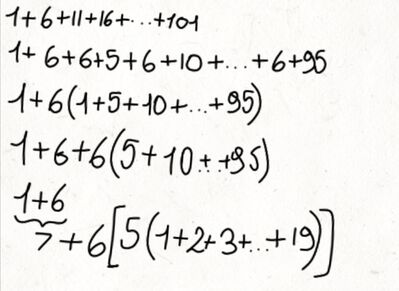 1+6+11+16+...+101
1+6+6+5+6+10+...+6+95
1+6(1+5+10+...+95)
1+6+6(5+10+..+95)
1+6
7+6[5(1+2+3+...+19)]